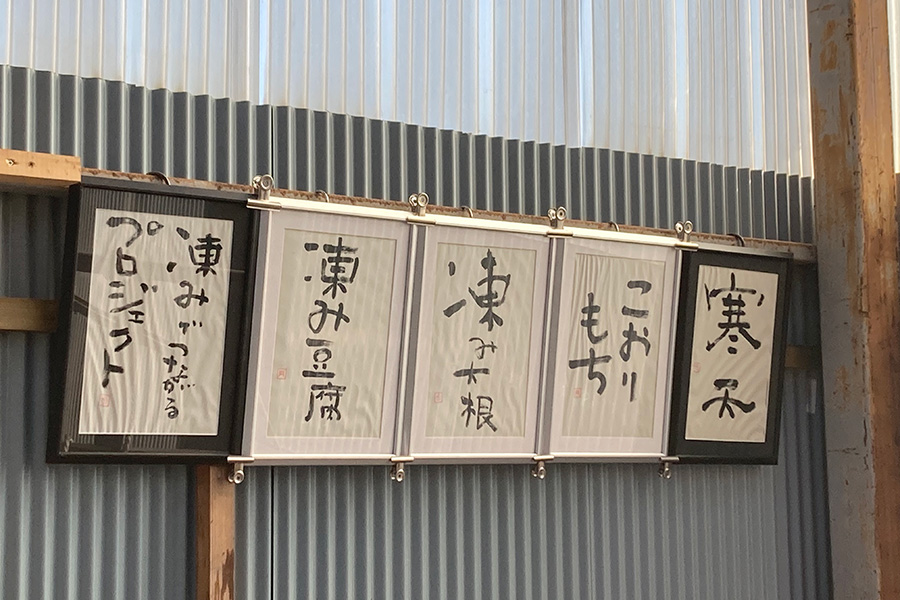 寒天
こおり
もち
凍み大根
凍み豆腐
凍みでつながる
プロジェクト